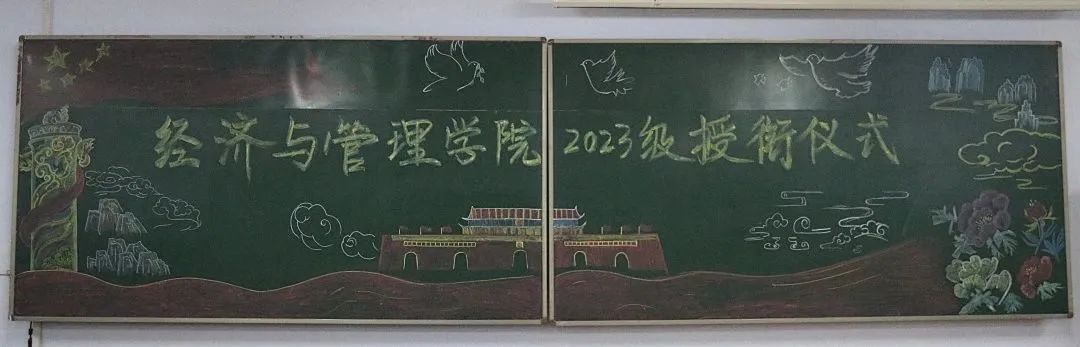 经济与管理学院 2023级授衔仪式